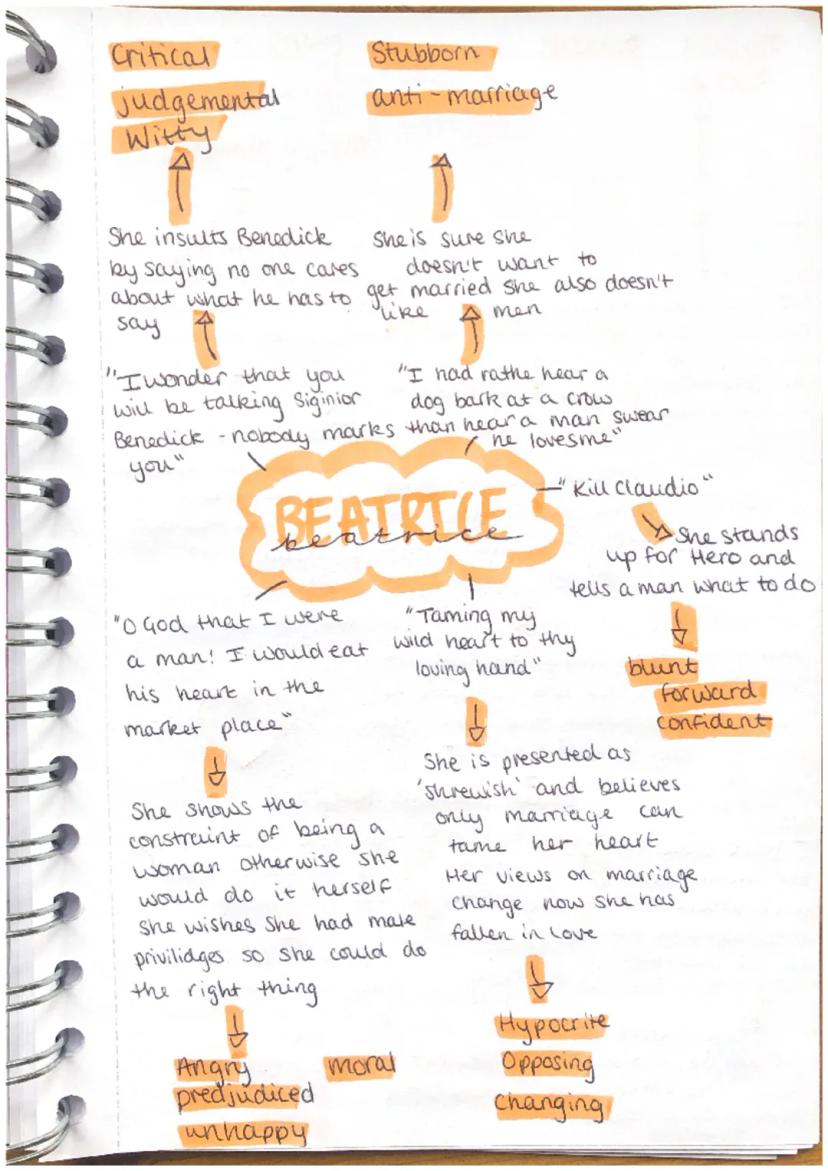 Critical
judgemental
Witty
She insults Benedick
by saying no one cares
about what he has to
say
"I wonder that you
will be talking Siginior
Benedick - nobody marks
you"
Stubborn
anti-marriage
She is sure she
doesn't want to
get married she also doesn't
like men
"I had rathe hear a
dog bark at a crow
than hear a man swear
he loves me"
BEATRICE
beatrice
"Kill Claudio"
She stands
up for Hero and
tells a man what to do
blunt
forward
confident
"O God that I were
a man! I would eat
his heart in the
market place"
She shows the
constraint of being a
woman otherwise she
would do it herself
she wishes she had male
privilidges so she could do
the right thing
Angry
moral
predjudiced
unhappy
"Taming my
wild heart to thy
loving hand"
She is presented as
'shrewish' and believes
only marriage can
tame her heart
Her views on marriage
change now she has
fallen in love
Hypocrite
Opposing
Changing